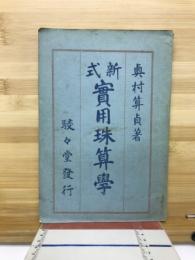 奥村算貞著
新式 實用珠算學
駸々堂發行